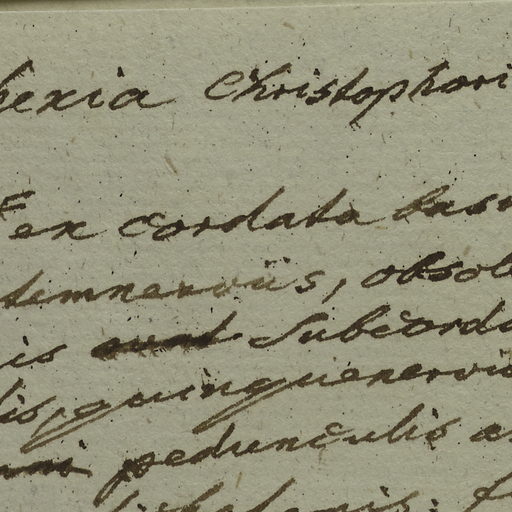 hexia Christophori
ex cordata bas
temnerviis, obsol
is sunt subcord
lis, quinquenervi
pedunculis a